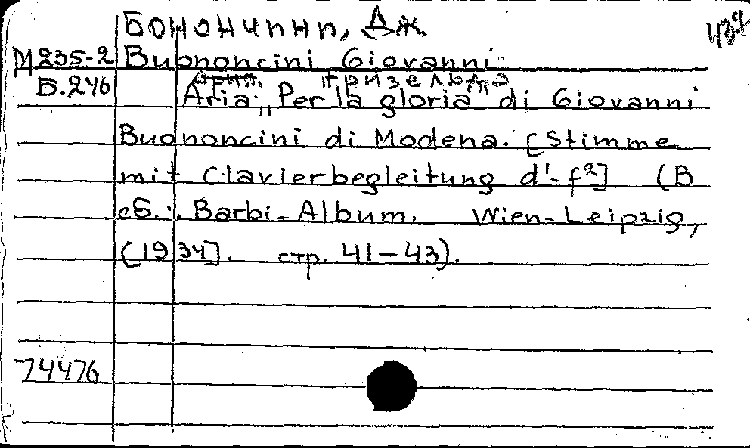 Бонончини, Дж
М 235-2 Buononcini Giovanni
Б.246 Aria „Per la gloria" di Giovanni
Buononcini di Modena. [Stimme
mit Clavierbegleitung d¹-f²] (В
сб.: Barbi-Album. Wien-Leipzig,
[1934]. стр. 41-43).
74476